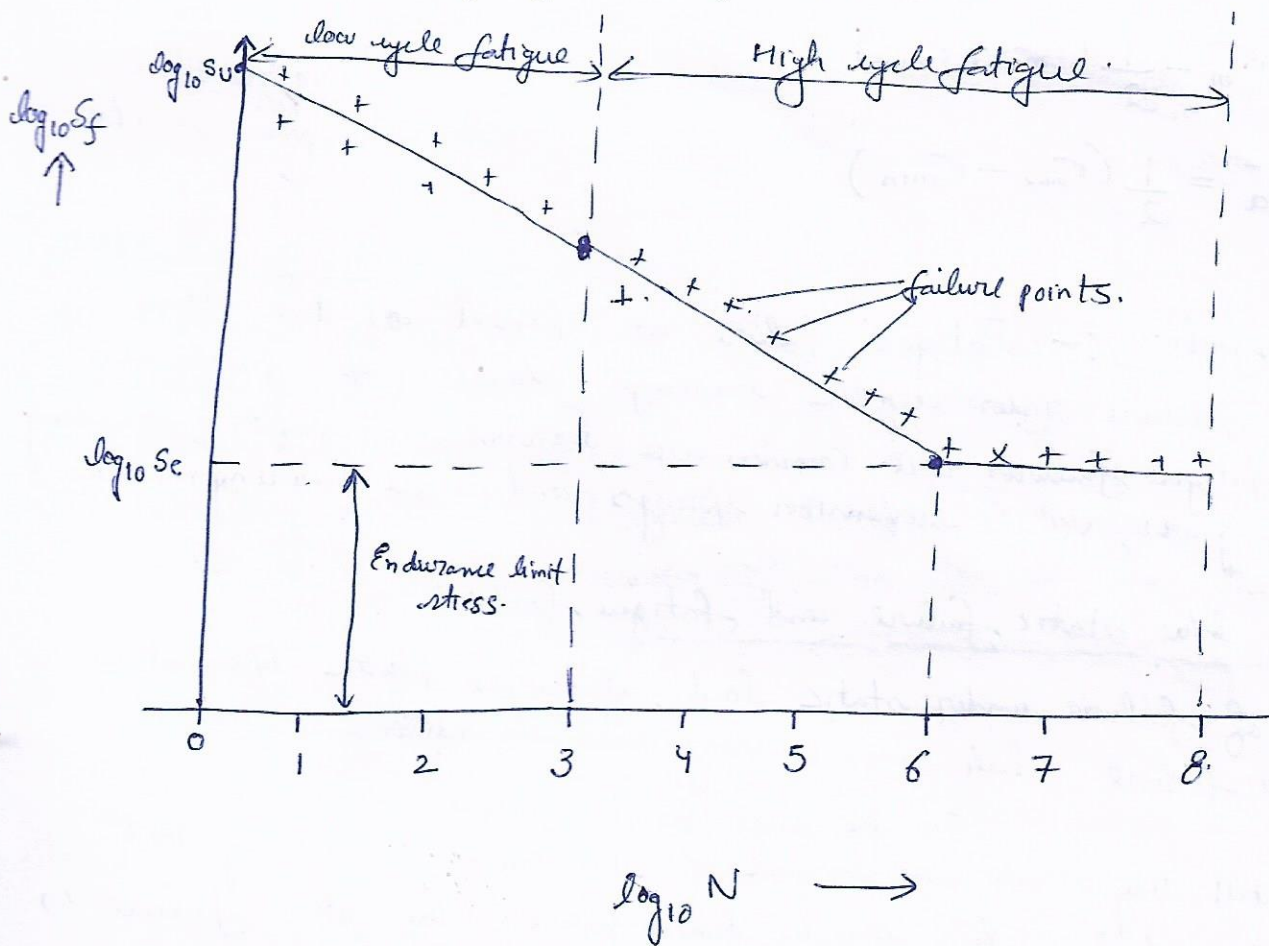 low cycle fatigue
High cycle fatigue.
log₁₀ Su
log₁₀ Sf
failure points.
log₁₀ Se
Endurance limit
stress.
0 1 2 3 4 5 6 7 8.
log₁₀ N